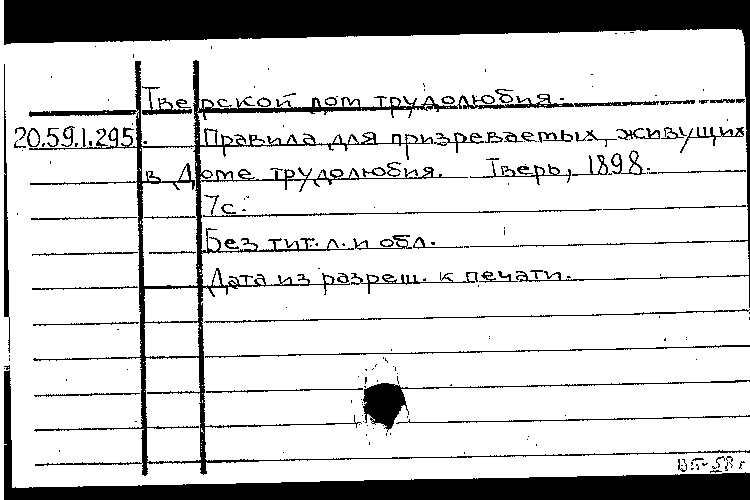 Тверской дом трудолюбия.
20.59.1.295. Правила для призреваемых, живущих
в Доме трудолюбия. Тверь, 1898.
7с.
Без тит. л. и обл.
Дата из разреш. к печати.